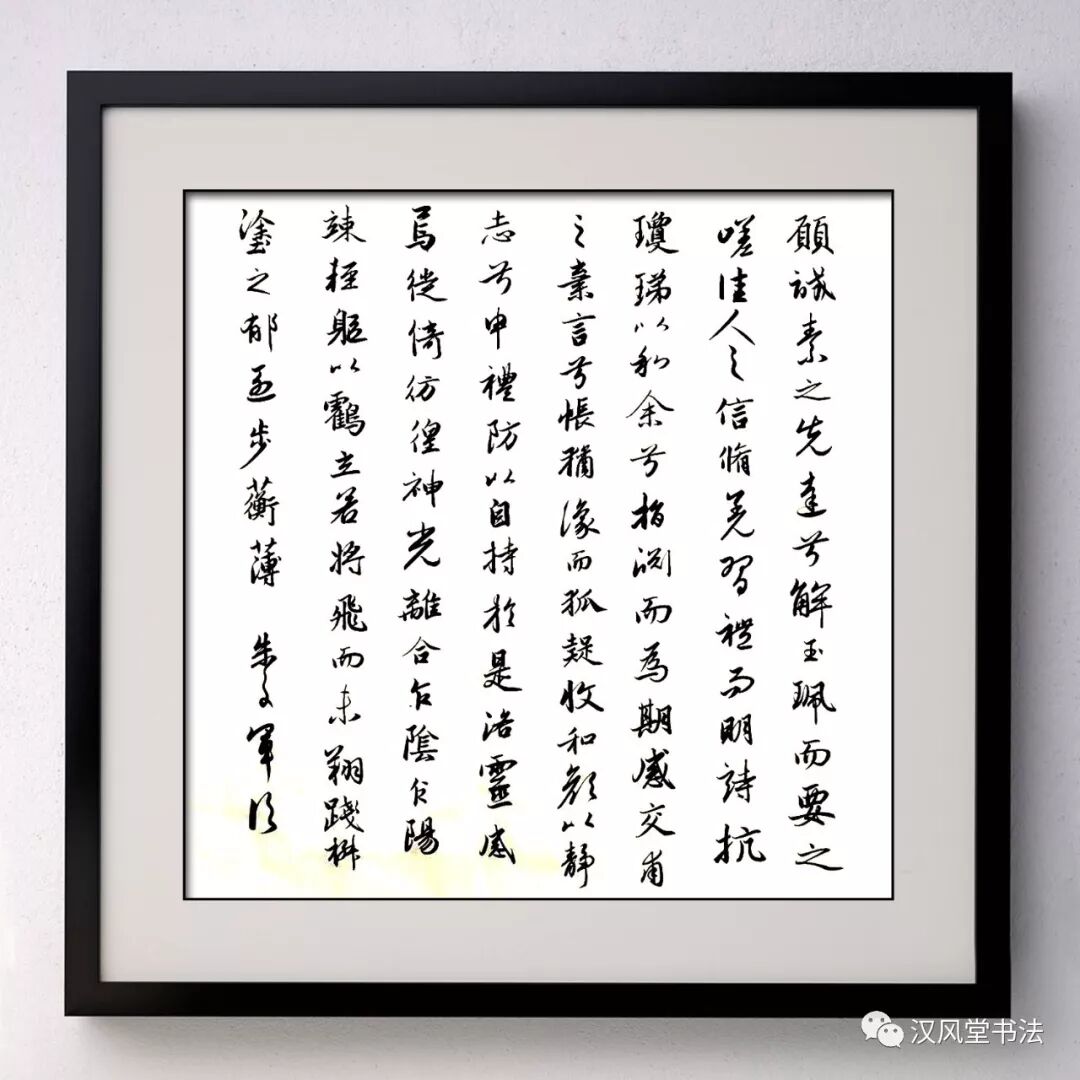 願誠素之先達兮解玉珮而要之
嗟佳人之信脩羌習禮而明詩抗
瓊珶以和余兮指淵而為期感交甫
之棄言兮悵猶豫而狐疑收和顏以靜
志兮申禮防以自持於是洛靈感
焉徙倚彷徨神光離合乍陰乍陽
竦輕軀以鶴立若將飛而未翔踐椒
塗之郁烈步蘅薄 朱
汉风堂书法